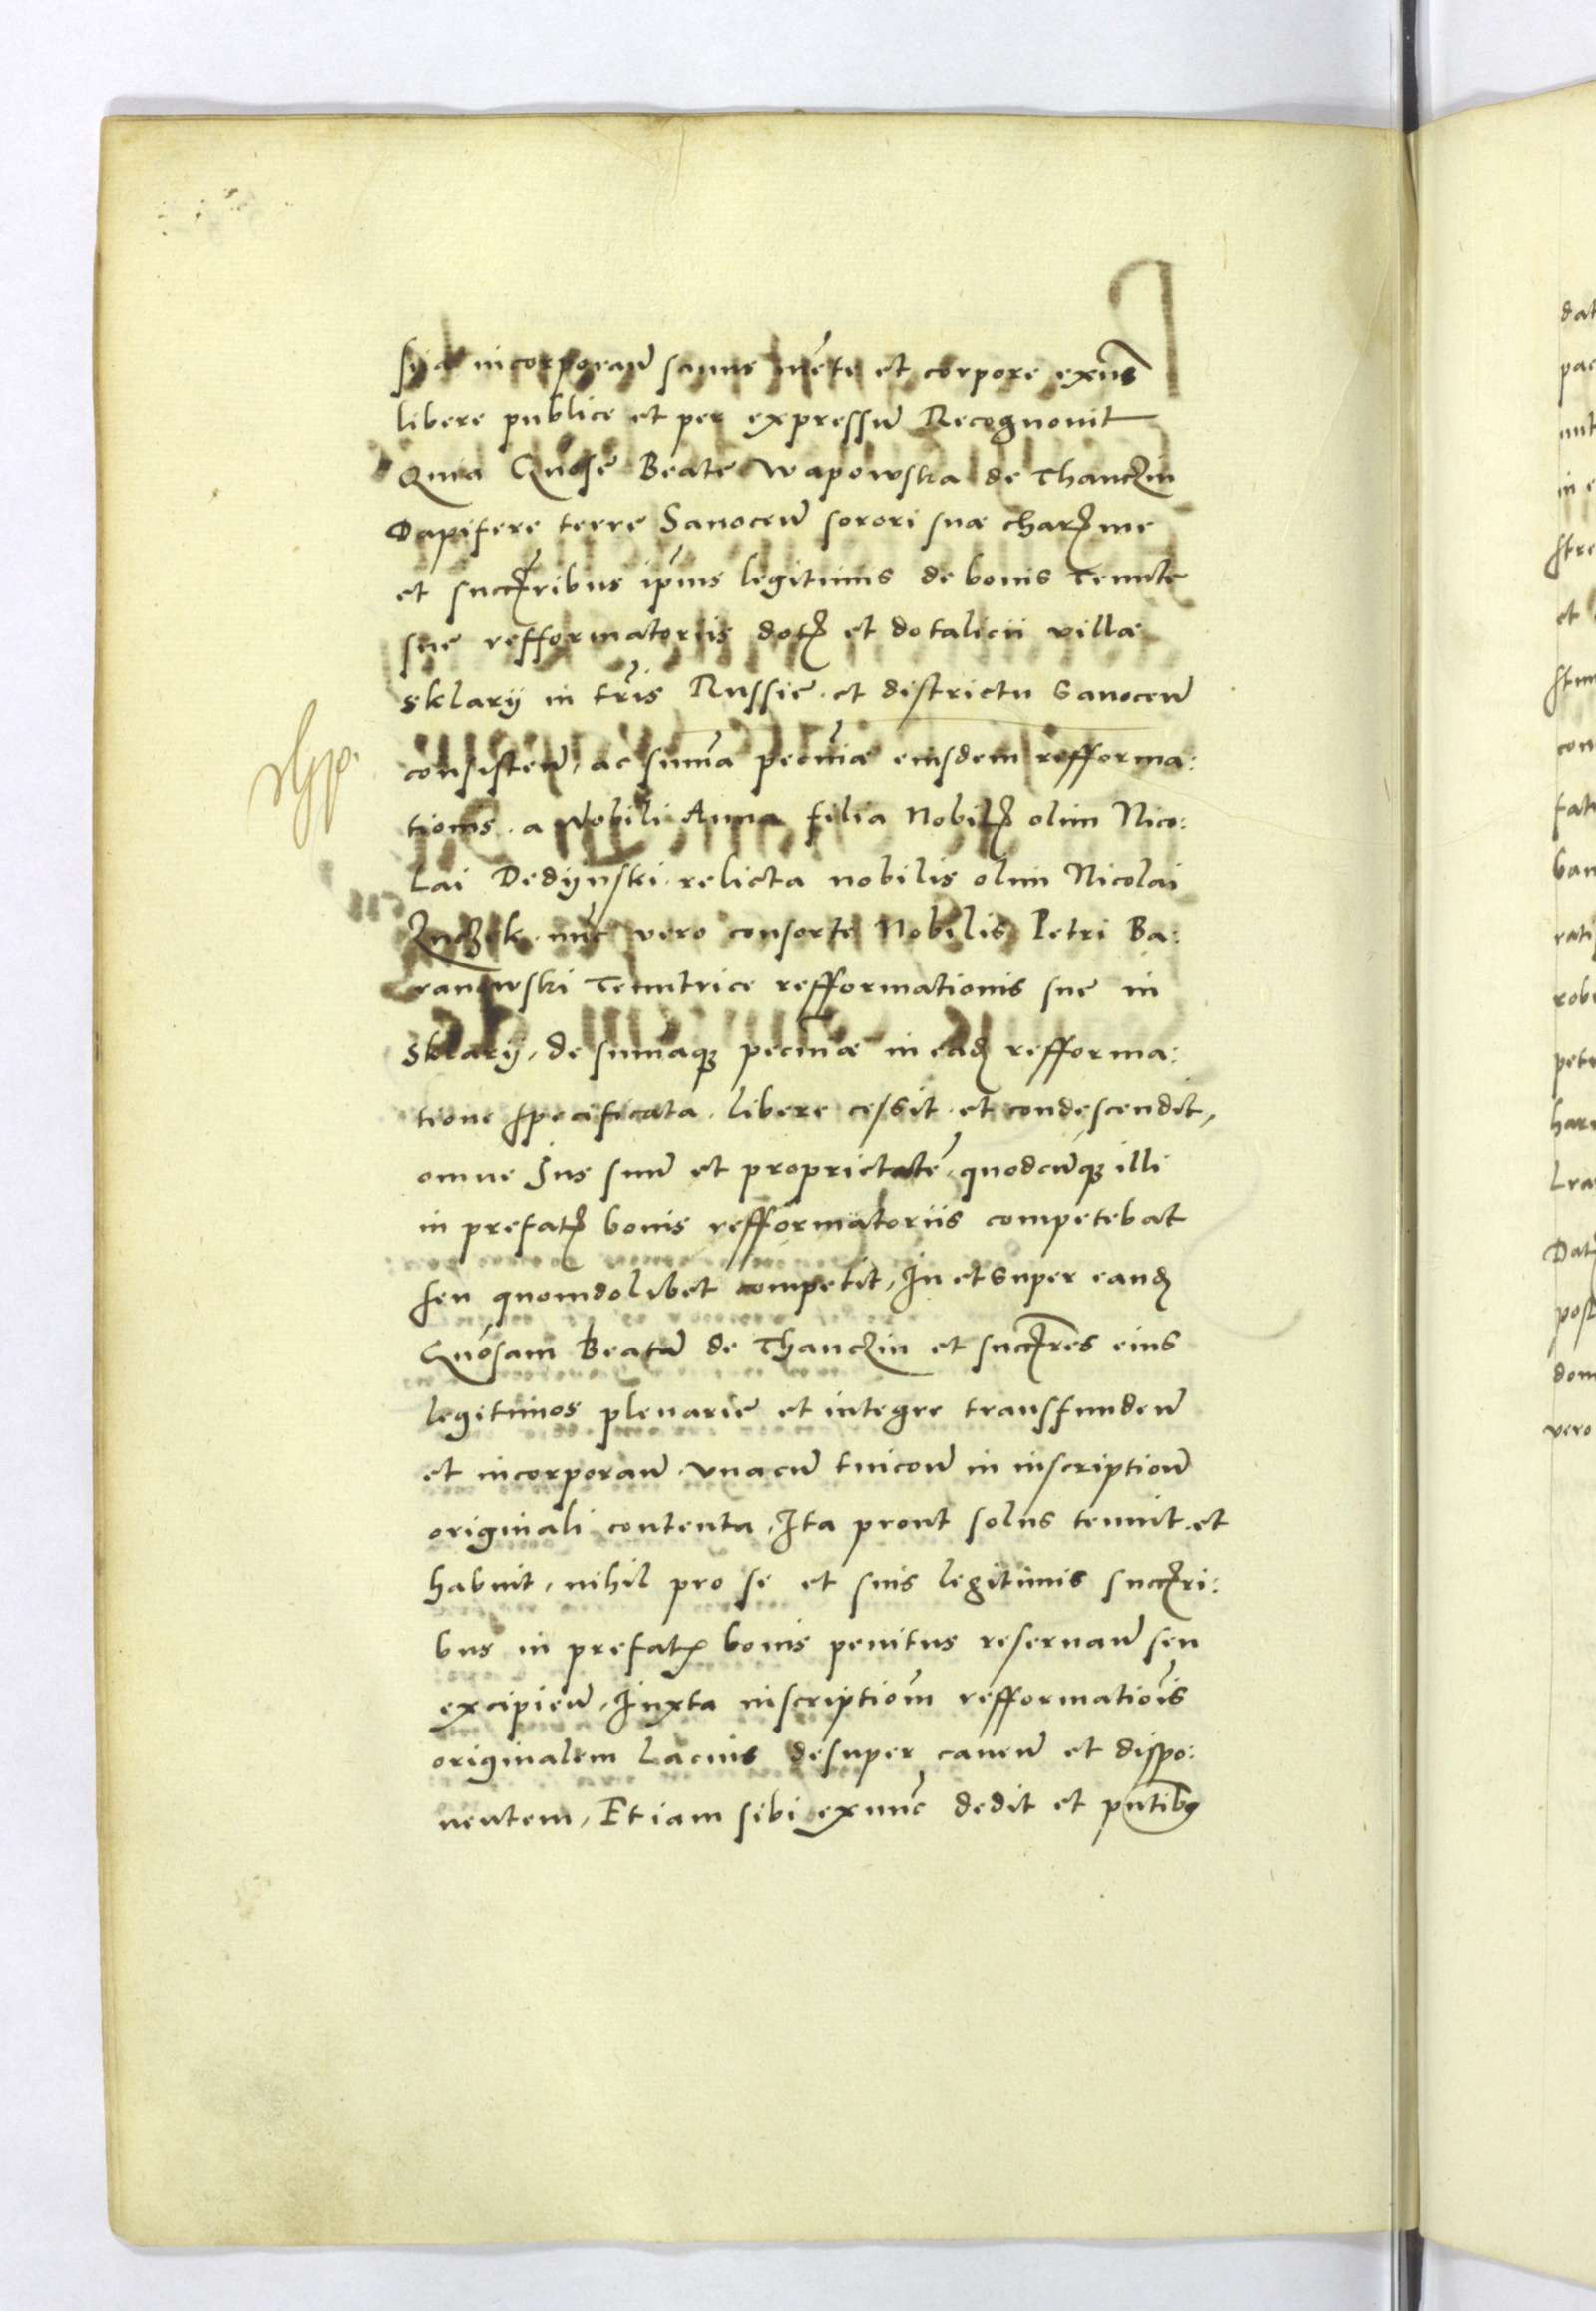 sya incorporan̄ sanus mēte et corpore exñs
libere publice et per expressū Recognouit
Quia Gnose Beate Wapowska de Thanczin
Dapifere terre Sanocen̄ sorori suæ charꝫme
et succꝫribus ip̄ius legitimis de bonis Tenute
sue refformatoriis dotꝫ et dotalicii villæ
Sklary in tr̄is Russie et districtu Sanocen̄
consisten̄, ac sum̄a pecūiæ eiusdem refforma:
tionis. a Nobili Anna filia Nobilꝫ olim Nico:
lai Dedÿnski relicta nobilis olim Nicolai
nūc vero consorte Nobilis Petri Ba:
ranowski Tenutrice refformationis sue in
Sklarÿ, de sumaqꝫ pecūiæ in eadꝫ refforma:
tione specificata. libere cessit et condescendit,
omne Jus suū et proprietatē quodcūqꝫ illi
in prefatꝫ bonis refformatoriis competebat
seu quomdolibet competit, In et super eandꝫ
Gnósam Beatā de Thanczin et succꝫres eius
legitimos plenarie et integre transfunden̄
et incorporan̄. vnacū tuicon̄ in inscription̄
originali contenta, Ita prout solus tenuit et
habuit, nihil pro se et suis legitimis succꝫri:
bus in prefatꝫ bonis penitus reseruan̄ seu
excipien̄, Iuxta inscriptiōm refformatiōis
originalem Lacius desuper cauen̄ et dispo:
nentem, Etiam sibi exnūc dedit et pn̄tibꝯ